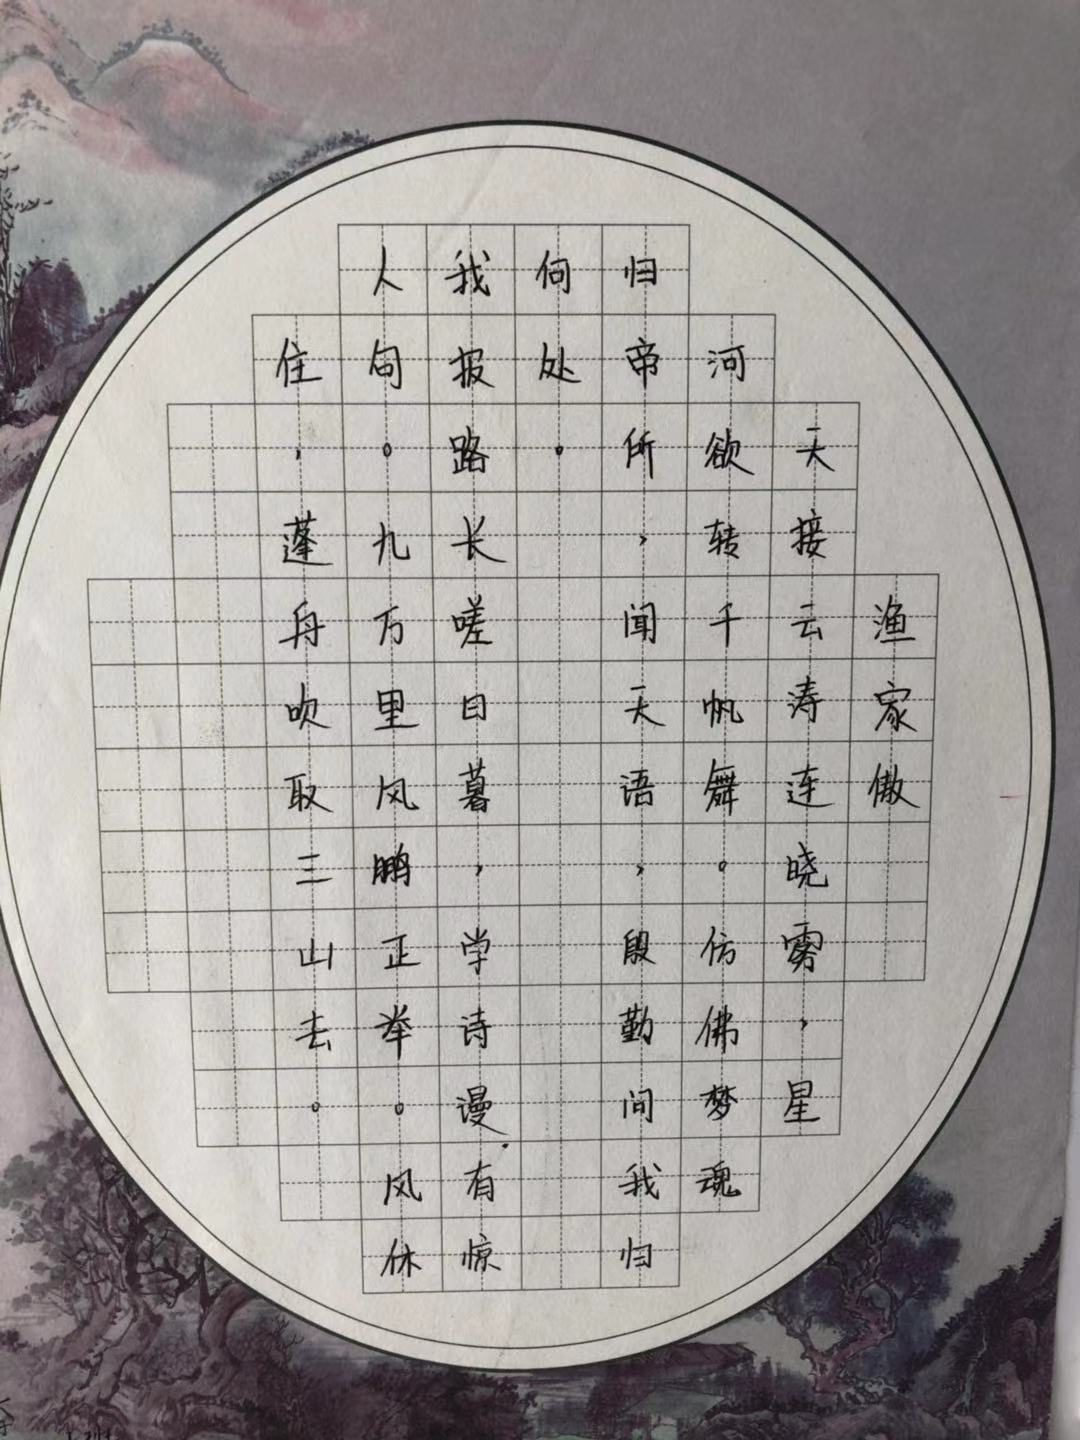 渔家傲
天接云涛连晓雾,星
河欲转千帆舞。仿佛梦魂
归帝所,闻天语,殷勤问我归
何处。
我报路长嗟日暮,学诗漫有惊
人句。九万里风鹏正举。风休
住,蓬舟吹取三山去。